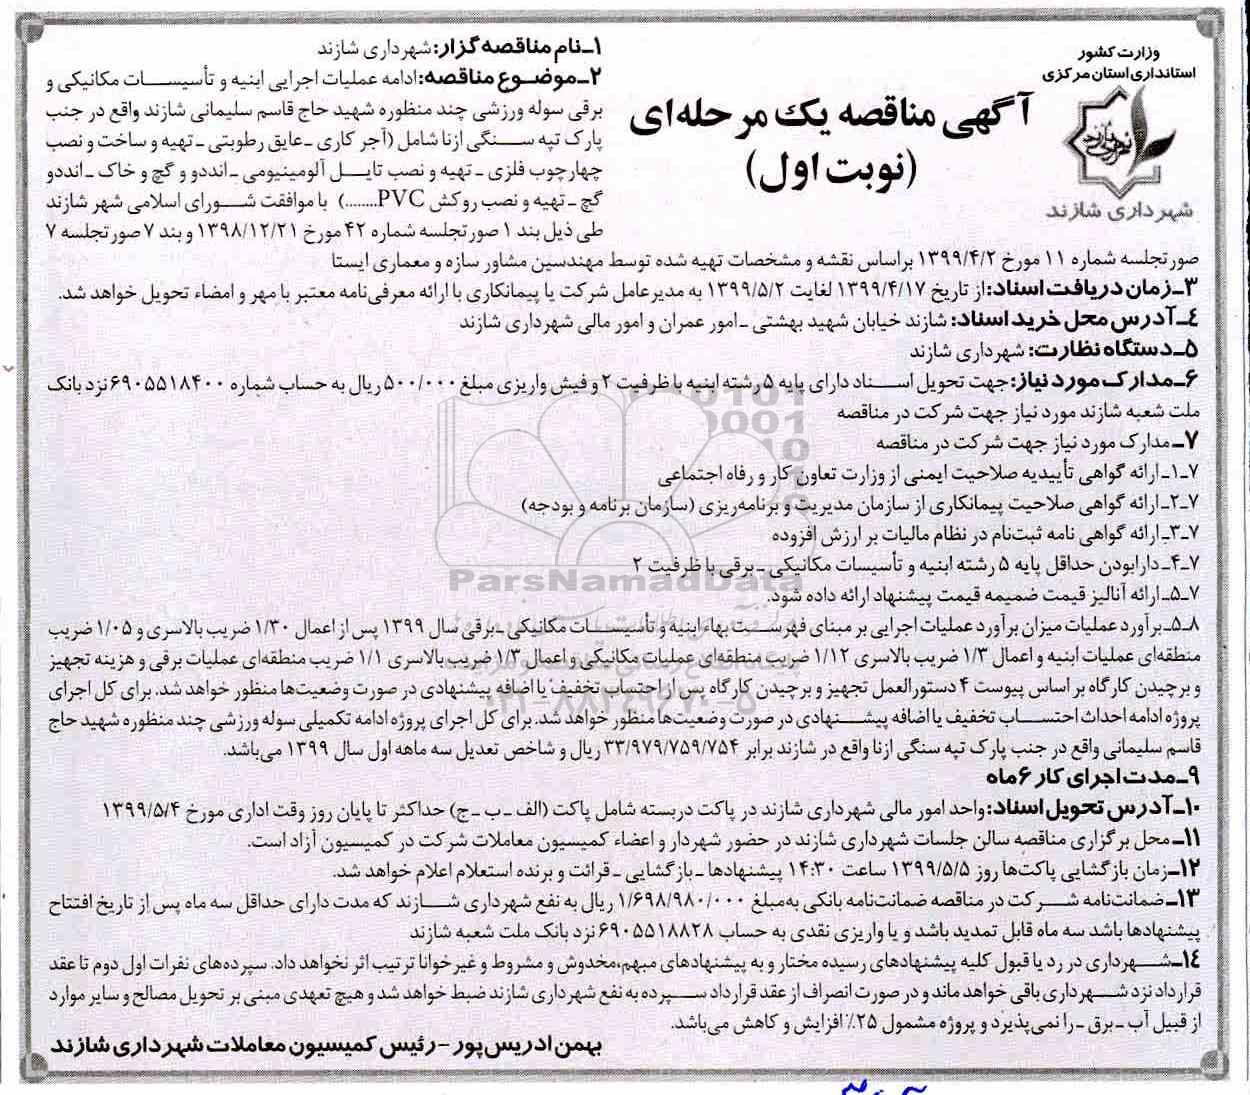 وزارت کشور
استانداری استان مرکزی
شهرداری شازند
آگهی مناقصه یک مرحله‌ای
(نوبت اول)
۱ـ نام مناقصه گزار: شهرداری شازند
۲ـ موضوع مناقصه: ادامه عملیات اجرایی ابنیه و تأسیسات مکانیکی و
برقی سوله ورزشی چند منظوره شهید حاج قاسم سلیمانی شازند واقع در جنب
پارک تپه سنگی ازنا شامل (آجر کاری ـ عایق رطوبتی ـ تهیه و ساخت و نصب
چهارچوب فلزی ـ تهیه و نصب تایل آلومینیومی ـ انددو و گچ و خاک ـ انددو
گچ ـ تهیه و نصب روکش PVC........) با موافقت شورای اسلامی شهر شازند
طی ذیل بند ۱ صورتجلسه شماره ۴۲ مورخ ۱۳۹۸/۱۲/۲۱ و بند ۷ صورتجلسه ۷
صورتجلسه شماره ۱۱ مورخ ۱۳۹۹/۴/۲ براساس نقشه و مشخصات تهیه شده توسط مهندسین مشاور سازه و معماری ایستا
۳ـ زمان دریافت اسناد: از تاریخ ۱۳۹۹/۴/۱۷ لغایت ۱۳۹۹/۵/۲ به مدیرعامل شرکت یا پیمانکاری با ارائه معرفی‌نامه معتبر با مهر و امضاء تحویل خواهد شد.
۴ـ آدرس محل خرید اسناد: شازند خیابان شهید بهشتی ـ امور عمران و امور مالی شهرداری شازند
۵ـ دستگاه نظارت: شهرداری شازند
۶ـ مدارک مورد نیاز: جهت تحویل اسناد دارای پایه ۵ رشته ابنیه با ظرفیت ۲ و فیش واریزی مبلغ ۵۰۰/۰۰۰ ریال به حساب شماره ۶۹۰۵۵۱۸۴۰۰ نزد بانک
ملت شعبه شازند مورد نیاز جهت شرکت در مناقصه
۷ـ مدارک مورد نیاز جهت شرکت در مناقصه
۷ـ۱ـ ارائه گواهی تأییدیه صلاحیت ایمنی از وزارت تعاون کار و رفاه اجتماعی
۷ـ۲ـ ارائه گواهی صلاحیت پیمانکاری از سازمان مدیریت و برنامه‌ریزی (سازمان برنامه و بودجه)
۷ـ۳ـ ارائه گواهی نامه ثبت‌نام در نظام مالیات بر ارزش افزوده
۷ـ۴ـ دارا بودن حداقل پایه ۵ رشته ابنیه و تأسیسات مکانیکی ـ برقی با ظرفیت ۲
۷ـ۵ـ ارائه آنالیز قیمت ضمیمه قیمت پیشنهاد ارائه داده شود.
۸ـ۵ـ برآورد عملیات میزان برآورد عملیات اجرایی بر مبنای فهرست بهاء ابنیه و تأسیسات مکانیکی ـ برقی سال ۱۳۹۹ پس از اعمال ۱/۳۰ ضریب بالاسری و ۱/۰۵ ضریب
منطقه‌ای عملیات ابنیه و اعمال ۱/۳ ضریب بالاسری ۱/۱۲ ضریب منطقه‌ای عملیات مکانیکی و اعمال ۱/۳ ضریب بالاسری ۱/۱ ضریب منطقه‌ای عملیات برقی و هزینه تجهیز
و برچیدن کارگاه بر اساس پیوست ۴ دستورالعمل تجهیز و برچیدن کارگاه پس از احتساب تخفیف یا اضافه پیشنهادی در صورت وضعیت‌ها منظور خواهد شد. برای کل اجرای
پروژه ادامه احداث احتساب تخفیف یا اضافه پیشنهادی در صورت وضعیت‌ها منظور خواهد شد. برای کل اجرای پروژه ادامه تکمیلی سوله ورزشی چند منظوره شهید حاج
قاسم سلیمانی واقع در جنب پارک تپه سنگی ازنا واقع در شازند برابر ۳۳/۹۷۹/۷۵۹/۷۵۴ ریال و شاخص تعدیل سه ماهه اول سال ۱۳۹۹ می‌باشد.
۹ـ مدت اجرای کار ۶ ماه
۱۰ـ آدرس تحویل اسناد: واحد امور مالی شهرداری شازند در پاکت دربسته شامل پاکت (الف ـ ب ـ ج) حداکثر تا پایان روز وقت اداری مورخ ۱۳۹۹/۵/۴
۱۱ـ محل برگزاری مناقصه سالن جلسات شهرداری شازند در حضور شهردار و اعضاء کمیسیون معاملات شرکت در کمیسیون آزاد است.
۱۲ـ زمان بازگشایی پاکت‌ها روز ۱۳۹۹/۵/۵ ساعت ۱۴:۳۰ پیشنهادها ـ بازگشایی ـ قرائت و برنده استعلام اعلام خواهد شد.
۱۳ـ ضمانت‌نامه شرکت در مناقصه ضمانت‌نامه بانکی به‌مبلغ ۱/۶۹۸/۹۸۰/۰۰۰ ریال به نفع شهرداری شازند که مدت دارای حداقل سه ماه پس از تاریخ افتتاح
پیشنهادها باشد سه ماه قابل تمدید باشد و یا واریزی نقدی به حساب ۶۹۰۵۵۱۸۸۲۸ نزد بانک ملت شعبه شازند
۱۴ـ شهرداری در رد یا قبول کلیه پیشنهادهای رسیده مختار و به پیشنهادهای مبهم، مخدوش و مشروط و غیرخوانا ترتیب اثر نخواهد داد. سپرده‌های نفرات اول دوم تا عقد
قرارداد نزد شهرداری باقی خواهد ماند و در صورت انصراف از عقد قرارداد سپرده به نفع شهرداری شازند ضبط خواهد شد و هیچ تعهدی مبنی بر تحویل مصالح و سایر موارد
از قبیل آب ـ برق ـ را نمی‌پذیرد و پروژه مشمول ۲۵٪ افزایش و کاهش می‌باشد.
بهمن ادریس‌پور - رئیس کمیسیون معاملات شهرداری شازند
ParsNamadData